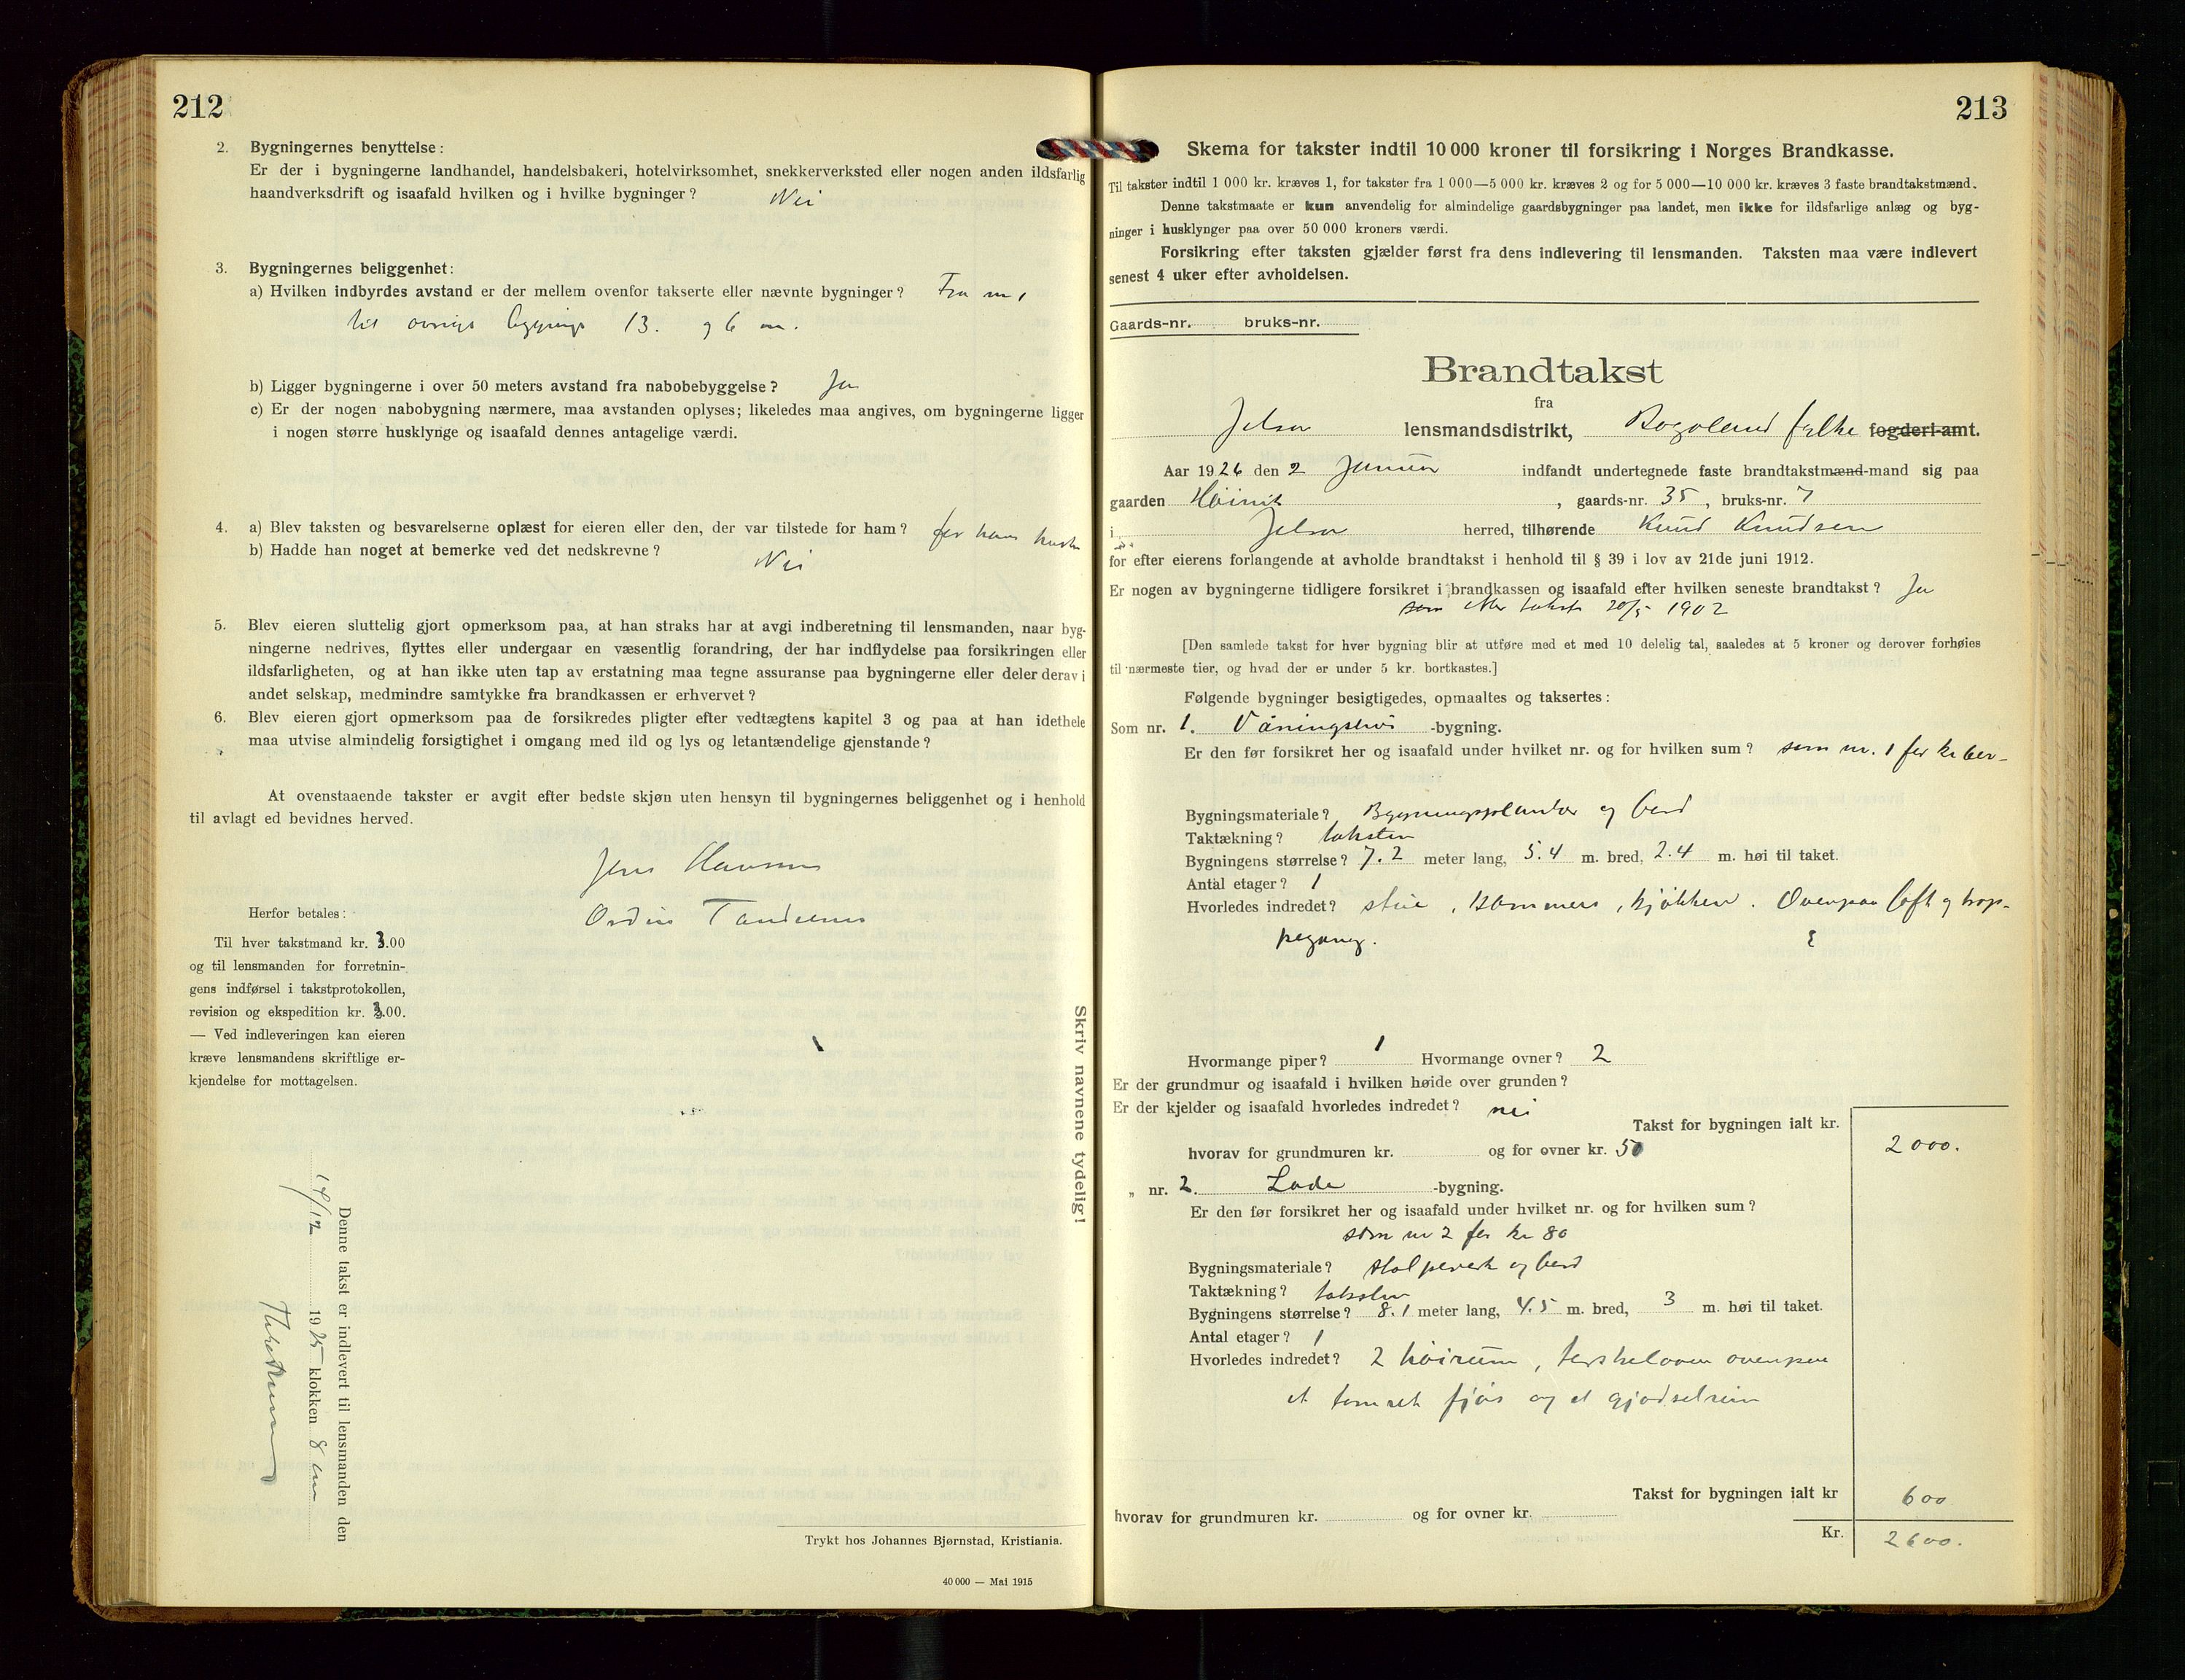 212
2. Bygningernes benyttelse:
Er der i bygningerne landhandel, handelsbakeri, hotelvirksomhet, snekkerverksted eller nogen anden ildsfarlig
haandverksdrift og isaafald hvilken og i hvilke bygninger? Nei
3. Bygningernes beliggenhet:
a) Hvilken indbyrdes avstand er der mellem ovenfor takserte eller nævnte bygninger? Fra nr 1
til 13. og 6 m.
b) Ligger bygningerne i over 50 meters avstand fra nabobebyggelse? Ja
c) Er der nogen nabobygning nærmere, maa avstanden oplyses; likeledes maa angives, om bygningerne ligger
i nogen større husklynge og isaafald dennes antagelige værdi.
4. a) Blev taksten og besvarelserne oplæst for eieren eller den, der var tilstede for ham? for hans
b) Hadde han noget at bemerke ved det nedskrevne? Nei
5. Blev eieren sluttelig gjort opmerksom paa, at han straks har at avgi indberetning til lensmanden, naar byg-
ningerne nedrives, flyttes eller undergaar en væsentlig forandring, der har indflydelse paa forsikringen eller
ildsfarligheten, og at han ikke uten tap av erstatning maa tegne assuranse paa bygningerne eller deler derav i
andet selskap, medmindre samtykke fra brandkassen er erhvervet?
6. Blev eieren gjort opmerksom paa de forsikredes pligter efter vedtægtens kapitel 3 og paa at han idethele
maa utvise almindelig forsigtighet i omgang med ild og lys og letantændelige gjenstande?
At ovenstaaende takster er avgit efter bedste skjøn uten hensyn til bygningernes beliggenhet og i henhold
til avlagt ed bevidnes herved.
Jens
Herfor betales:
Til hver takstmand kr. 3.00
og til lensmanden for forretnin-
gens indførsel i takstprotokollen,
revision og ekspedition kr. 3.00.
— Ved indleveringen kan eieren
kræve lensmandens skriftlige er-
kjendelse for mottagelsen.
Denne takst er indlevert til lensmanden den
14/12 1925 klokken 8
Skriv navnene tydelig!
Trykt hos Johannes Bjørnstad, Kristiania.
40 000 — Mai 1915
213
Skema for takster indtil 10 000 kroner til forsikring i Norges Brandkasse.
Til takster indtil 1 000 kr. kræves 1, for takster fra 1 000—5 000 kr. kræves 2 og for 5 000—10 000 kr. kræves 3 faste brandtakstmænd.
Denne takstmaate er kun anvendelig for almindelige gaardsbygninger paa landet, men ikke for ildsfarlige anlæg og byg-
ninger i husklynger paa over 50 000 kroners værdi.
Forsikring efter taksten gjælder først fra dens indlevering til lensmanden. Taksten maa være indlevert
senest 4 uker efter avholdelsen.
Gaards-nr. bruks-nr.
Brandtakst
fra
Jelsa lensmandsdistrikt, Rogaland fylke fogderi-amt.
Aar 1926 den 2 Januar indfandt undertegnede faste brandtakstmænd-mand sig paa
gaarden Høivik, gaards-nr. 35, bruks-nr. 7
i Jelsa herred, tilhørende Knud Knudsen
for efter eierens forlangende at avholde brandtakst i henhold til § 39 i lov av 21de juni 1912.
Er nogen av bygningerne tidligere forsikret i brandkassen og isaafald efter hvilken seneste brandtakst? Ja
som efter takst 20/5 1902
[Den samlede takst for hver bygning blir at utføre med et med 10 delelig tal, saaledes at 5 kroner og derover forhøies
til nærmeste tier, og hvad der er under 5 kr. bortkastes.]
Følgende bygninger besigtigedes, opmaaltes og taksertes:
Som nr. 1. Våningshus -bygning.
Er den før forsikret her og isaafald under hvilket nr. og for hvilken sum? som nr. 1 for kr
Bygningsmateriale? Bygningsplanker og bord
Taktækning? taksten
Bygningens størrelse? 7.2 meter lang, 5.4 m. bred, 2.4 m. høi til taket.
Antal etager? 1
Hvorledes indredet? stue, kammers, kjøkken. Ovenpaa loft og trap-
pegang.
Hvormange piper? 1 Hvormange ovner? 2
Er der grundmur og isaafald i hvilken høide over grunden?
Er der kjelder og isaafald hvorledes indredet? nei
Takst for bygningen ialt kr. 2000.
hvorav for grundmuren kr. og for ovner kr. 50
„ nr. 2. Lade -bygning.
Er den før forsikret her og isaafald under hvilket nr. og for hvilken sum?
som nr 2 for kr 80
Bygningsmateriale? stolpeverk og bord
Taktækning? taksten
Bygningens størrelse? 8.1 meter lang, 4.5 m. bred, 3 m. høi til taket.
Antal etager? 1
Hvorledes indredet? 2 høirum, ovenpaa
et fjøs og et gjødselrum
Takst for bygningen ialt kr 600
hvorav for grundmuren kr. og for ovner kr.
Kr. 2600.